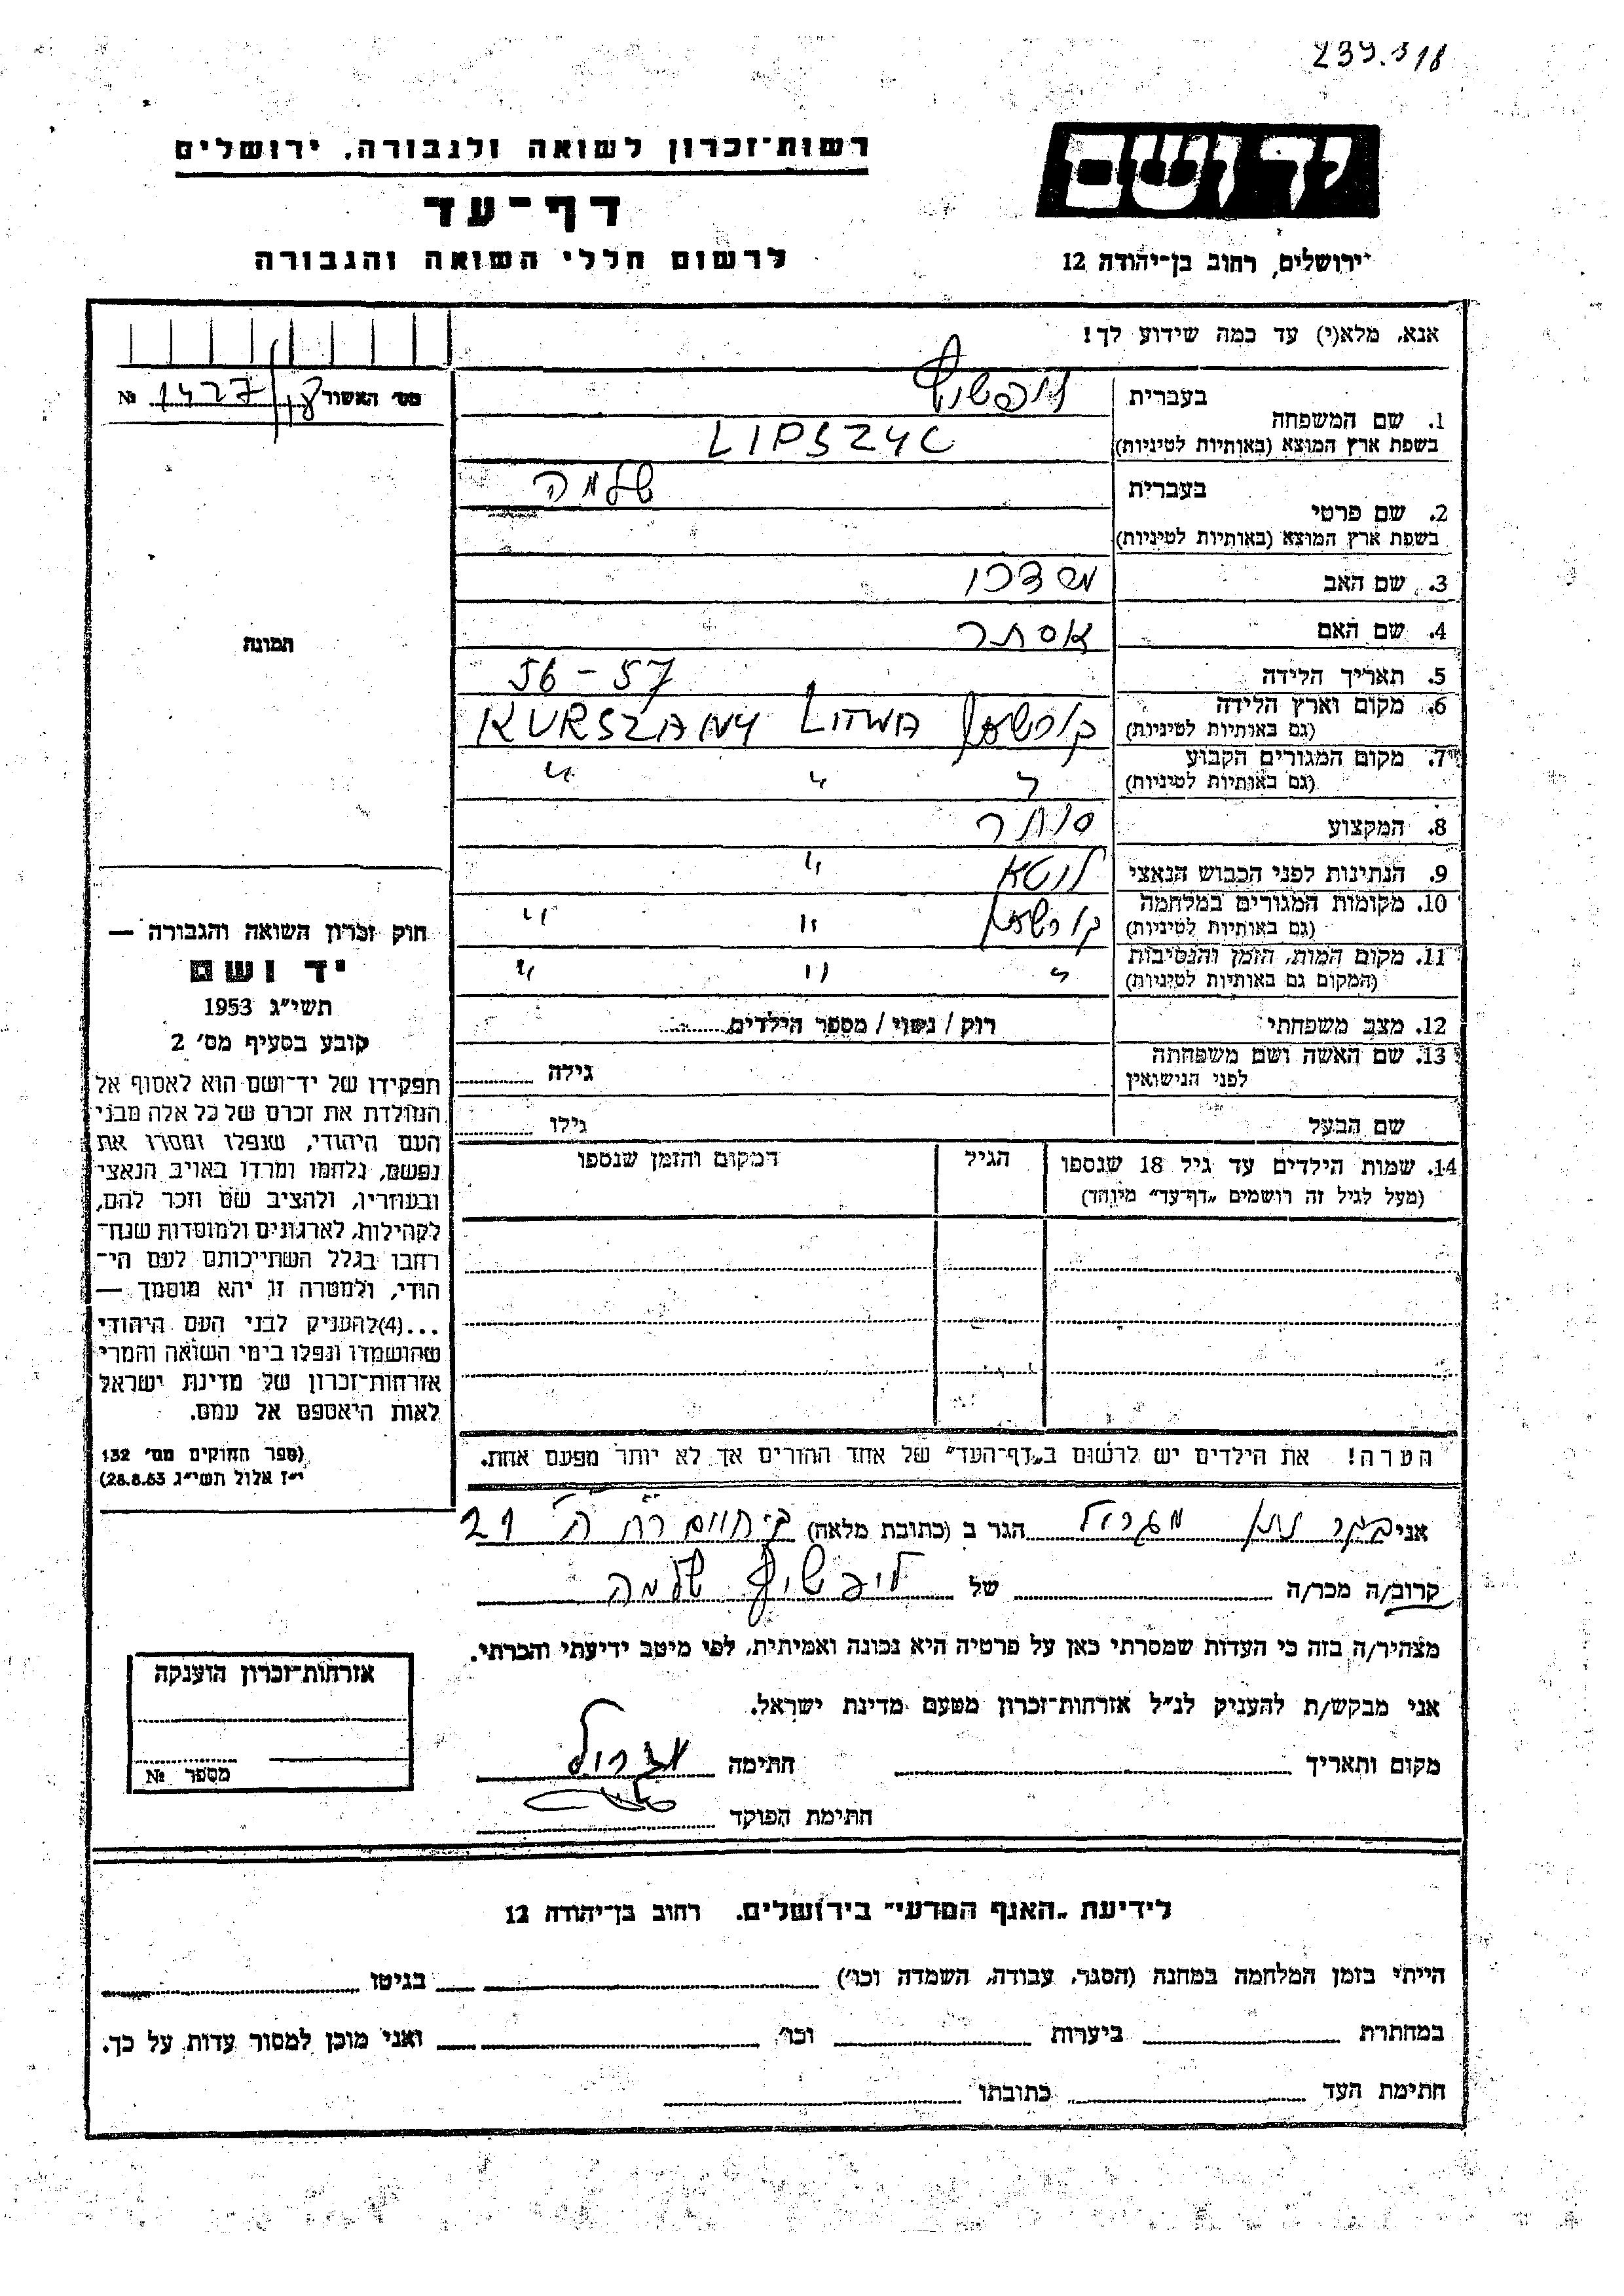 239.318
רשות־זכרון לשואה ולגבורה, ירושלים
ידושם
דף־עד
לרשום חללי השואה והגבורה
ירושלים, רחוב בן־יהודה 12
אנא, מלא(י) עד כמה שידוע לך!
מס׳ האשור 1427/18 №
1. שם המשפחה
בעברית ליפשיץ
בשפת ארץ המוצא (באותיות לטיניות) LIPSZYC
2. שם פרטי
בעברית שלמה
בשפת ארץ המוצא (באותיות לטיניות)
3. שם האב מרדכי
4. שם האם אסתר
5. תאריך הלידה 56-57
6. מקום וארץ הלידה
(גם באותיות לטיניות) KURSZANY LITWA
7. מקום המגורים הקבוע
(גם באותיות לטיניות) " " "
8. המקצוע סוחר
9. הנתינות לפני הכבוש הנאצי ליטא "
10. מקומות המגורים במלחמה
(גם באותיות לטיניות) " "
11. מקום המות, הזמן והנסיבות
(המקום גם באותיות לטיניות) " " "
12. מצב משפחתי רוק / נשוי / מספר הילדים
13. שם האשה ושם משפחתה
לפני הנישואין גילה
שם הבעל גילו
14. שמות הילדים עד גיל 18 שנספו הגיל המקום והזמן שנספו
(מעל לגיל זה רושמים „דף־עד״ מיוחד)
הערה! את הילדים יש לרשום ב„דף־העד״ של אחד ההורים אך לא יותר מפעם אחת.
התמונה
חוק זכרון השואה והגבורה —
יד ושם
תשי״ג 1953
קובע בסעיף מס׳ 2
תפקידו של יד־ושם הוא לאסוף אל
המולדת את זכרם של כל אלה מבני
העם היהודי, שנפלו ומסרו את
נפשם, נלחמו ומרדו באויב הנאצי
ובעוזריו, ולהציב שם וזכר להם,
לקהילות, לארגונים ולמוסדות שנח־
רחבו בגלל השתייכותם לעם הי־
הודי, ולמטרה זו יהא מוסמך —
...(4)להעניק לבני העם היהודי
שהושמדו ונפלו בימי השואה והמרי
אזרחות־זכרון של מדינת ישראל
לאות היאספם אל עמם.
(ספר החוקים מס׳ 132
י״ז אלול תשי״ג 28.8.53)
אני הגר ב (כתובת מלאה) 21
קרוב/ה מכר/ה של ליפשיץ שלמה
מצהיר/ה בזה כי העדות שמסרתי כאן על פרטיה היא נכונה ואמיתית, לפי מיטב ידיעתי והכרתי.
אני מבקש/ת להעניק לנ״ל אזרחות־זכרון מטעם מדינת ישראל.
מקום ותאריך חתימה
חתימת הפוקד
אזרחות־זכרון הוענקה
מספר №
לידיעת „האגף המדעי״ בירושלים, רחוב בן־יהודה 12
הייתי בזמן המלחמה במחנה (הסגר, עבודה, השמדה וכו׳) בגיטו
במחתרת ביערות וכו׳ ואני מוכן למסור עדות על כך.
חתימת העד כתובתו